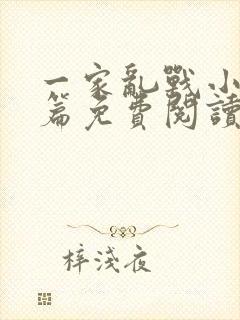 一家亂戰小
篇免費閱讀
梓淺夜